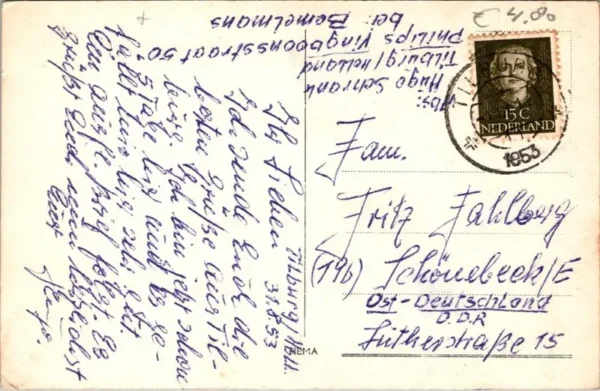 € 4.80
+
Abs:
Hugo Schrank
Tilburg/Holland
Philips Vingboonsstraat 50
bei: Bemelmans
15 C
NEDERLAND
1953
Tilburg/Holl.
31.8.53
Ihr Lieben
Ich sende Euch die
besten Grüße aus Til-
burg. Ich bin jetzt schon
5 Tage hier und es ge-
fällt mir hier sehr gut.
Ein ausf. Brief folgt. Es
grüßt Euch nun herzlichst
Euer
Hugo.
Fam.
Fritz Fahlberg
(19b) Schönebeck/E
Ost-Deutschland
D.D.R
Lutherstraße 15
NEMA